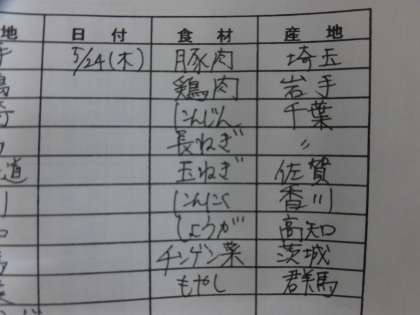 地 日付 食材 産地
手 5/24(木) 豚肉 埼玉
鶏肉 岩手
にんじん 千葉
長ねぎ 〃
道 玉ねぎ 佐賀
川 にんにく 香川
知 しょうが 高知
チンゲン菜 茨城
もやし 群馬